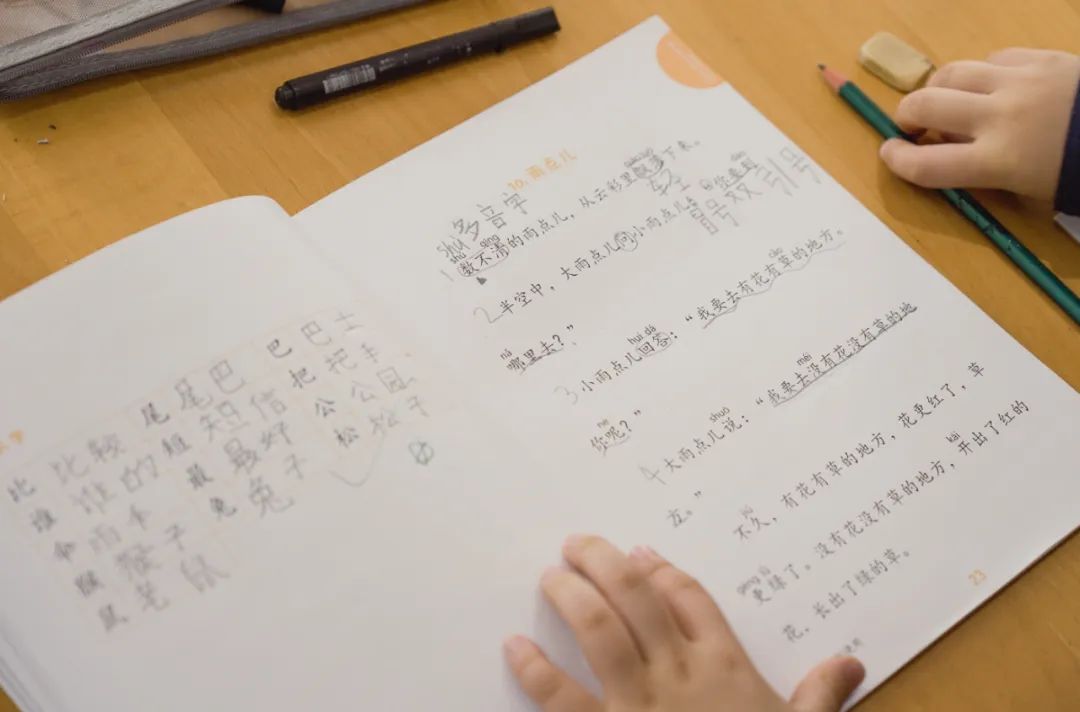 比 比较
谁 谁的
雨伞
猴 猴子
鼠
尾 尾巴
短 短信
最 最好
兔 兔子
巴 巴士
把 把手
公 公园
松 松子
10. 雨点儿
多音字
shǔ
shǔ qīng
1 数不清的雨点儿，从云彩里飘落下来。
轻
冒号 双引号
2 半空中，大雨点儿问小雨点儿：“你要到
nǎ
哪里去？”
huí dá cǎo
3 小雨点儿回答：“我要去有花有草的地方。
ne
你呢？”
shuō méi
4 大雨点儿说：“我要去没有花没有草的地
方。”
jiǔ
不久，有花有草的地方，花更红了，草
gèng lǜ kāi
更绿了。没有花没有草的地方，开出了红的
花，长出了绿的草。
23